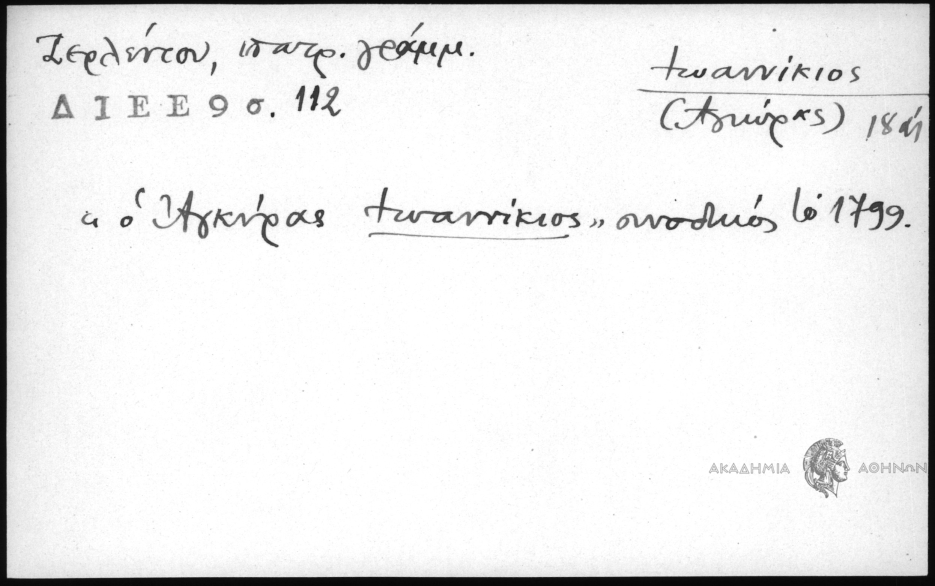 Ζερλέντου, πατρ. γράμμ.
ΔΙΕΕ 9 σ. 112
Ἰωαννίκιος
(Ἀγκύρας) 18
"ὁ Ἀγκύρας Ἰωαννίκιος" συνοδικός τὸ 1799.
ΑΚΑΔΗΜΙΑ ΑΘΗΝΩΝ